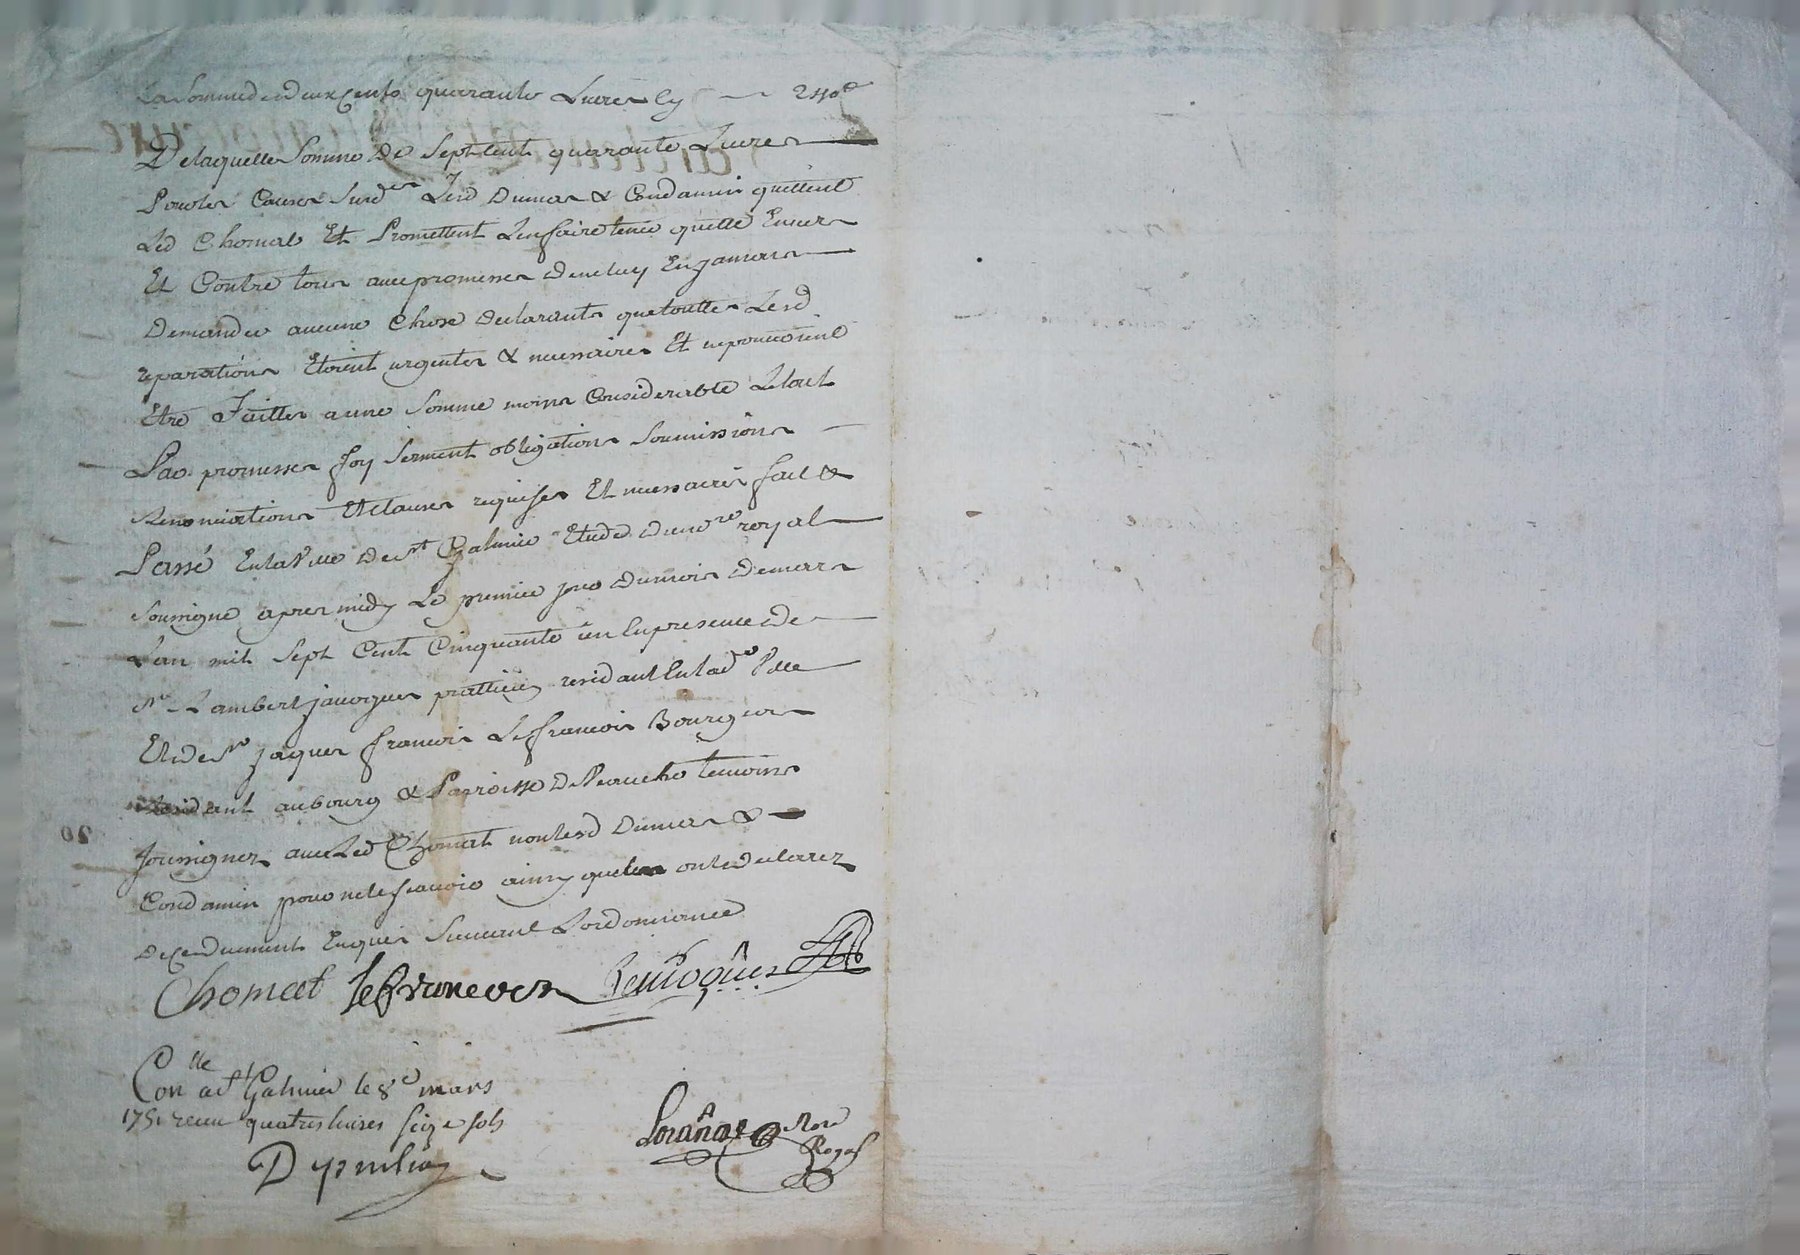 La Somme de deux Cents quarante Livres Cy — 240#
De laquelle Somme De Sept Cent quarante Livres
Pour les Causes Susd.es Lesd Dumas & Condamin quittent
Led Chomat Et Promettent Len faire tenir quitte Envers
Et Contre tous avec promesse de ne luy En jamais
Demander aucune Chose declarants que touttes Lesd
reparations Etoient urgentes & necessaires Et ne pouvoient
Etre Faittes a une Somme moins Considerable Le tout
Par promesses foy Serment obligations Soumissions
Renonciations Et clauses requises Et necessaires fait &
Passé En la Ville De St Galmier Etude du no.re royal
Soussigne apres midy Le premier jour du mois de mars
L'an mil Sept Cent Cinquante un En presence de
Sr Lambert javogues prattitien residant En lad.e Ville
Et de Sr jaques francois Lefrancois Bourgeois
residant au bourg & Parroisse De temoins
soussignez avec Led Chomat non lesd Dumas &
Condamin pour ne le scavoir ainsy quils ont declarez
De ce duement Enquis Suivant Lordonnance
Chomat lefrancois Javogues
Con.lle a St Galmier le 8e mars
1751 receu quatres livres seize sols
Nore
Royal